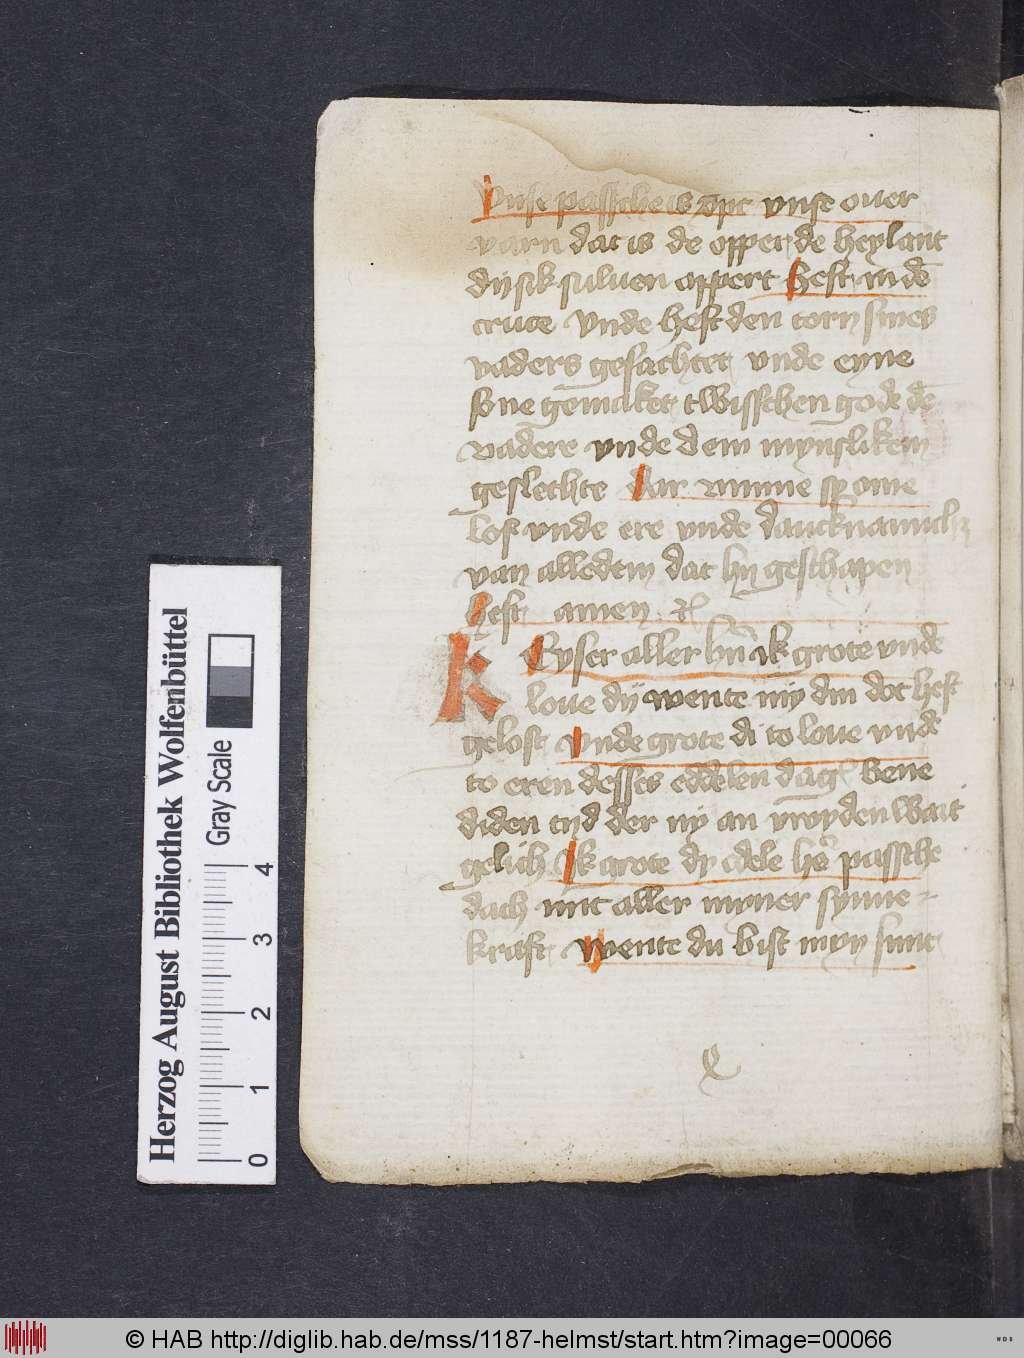 Vnse passche is xpc vnse ouer
varn dat is de opper de heylant
dij sik suluen oppert heft in dē
cruce vnde heft den torn sines
vaders gesachtet vnde eyne
sone gemaket twisschen gode dē
vadere vnde dem mynsliken
geslechte dar vmme sy ome
lof vnde ere vnde
van alledem dat hy geschapen
heft amen
KEyser aller hn̄ ik grote vnde
loue dij wente my din dot heft
gelost vnde grote di to loue vnde
to eren desses eddelen dag bene
diden tijd der ny an vroyden wart
gelich Ik grote dy edele her passche
dach mit aller myner synne
kraft wente du bist myn sunt
Herzog August Bibliothek Wolfenbüttel
Gray Scale
0 1 2 3 4
© HAB http://diglib.hab.de/mss/1187-helmst/start.htm?image=00066
WDB